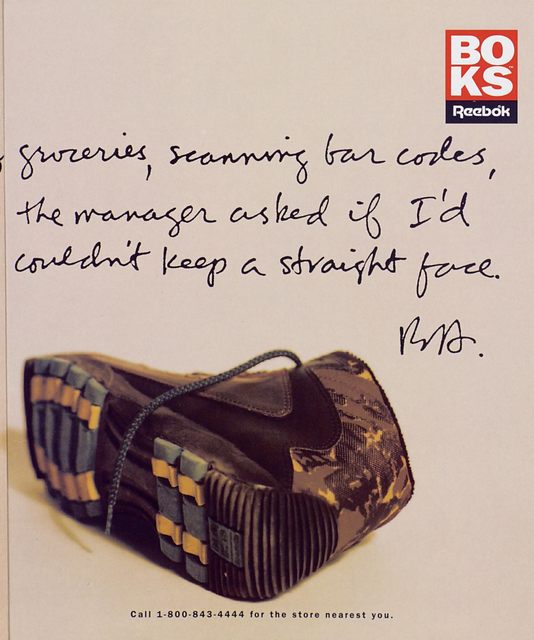 BO
KS
Reebok
groceries, scanning bar codes,
the manager asked if I'd
couldn't keep a straight face.
Call 1-800-843-4444 for the store nearest you.